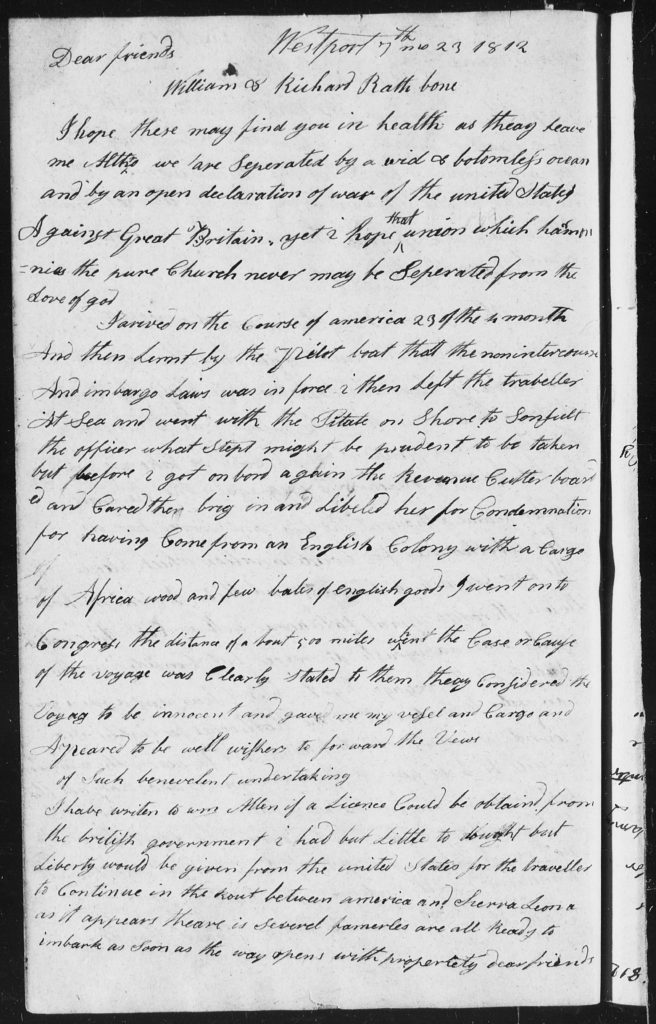 Westport 7th mo 23 1812
Dear friends
William & Richard Rathbone
I hope these may find you in health as theay leave
me Altho we are Seperated by a wid & botomless ocean
and by an open declaration of war of the united States
Against Great Britain, yet i hope that union which harmo
=nies the pure Church never may be Seperated from the
Love of god
I arived on the Course of america 23 of the 4 month
And then Lernt by the Pilot boat that the nonintercourse
And imbargo Laws was in force i then Left the traveller
At Sea and went with the on Shore to
the officer what Steps might be prudent to be taken
but before i got on bord again the Revenue Cutter board
ed and Cared then brig in and Libeled her for Condemnation
for having Come from an English Colony with a Cargo
of Africa wood and few bales of english goods I went on to
Congress the distance of about 500 miles when the Case or Cause
of the voyage was Clearly Stated to them theay Considered the
Voyag to be innocent and gaved me my vesel and Cargo and
Appeared to be well wishers to forward the Vews
of Such benevelent undertaking
I have writen to wm Allen if a Licence Could be obtaind from
the british government i had but Little to dought but
Liberty would be given from the united States for the traveller
to Continue in the rout between america and Sierra Leona
as it appears theare is Severel famerles are all Ready to
imbark as Soon as the way opens with propertety dear friends